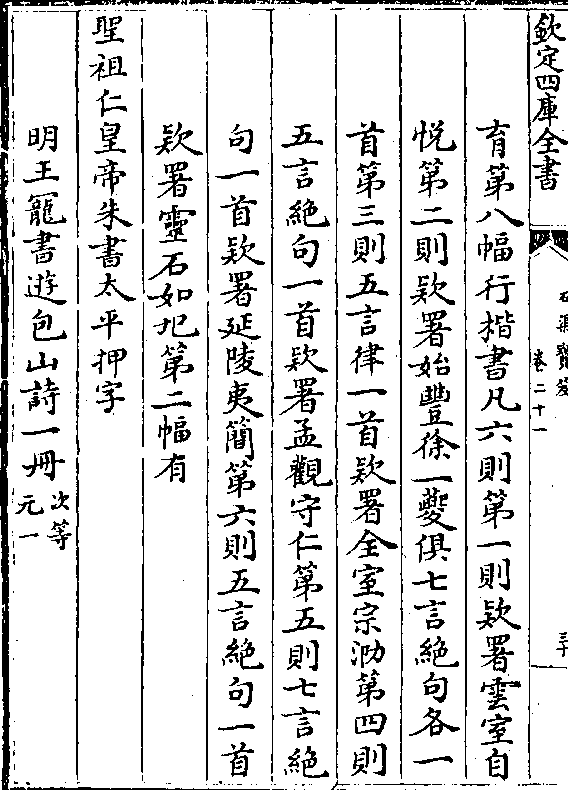 欽定四庫全書
卷二十一
育第八幅行楷書凡六則第一則欵署雲室自
悦第二則欵署始豐徐一夔俱七言絶句各一
首第三則五言律一首欵署全室宗泐第四則
五言絶句一首欵署孟觀守仁第五則七言絶
句一首欵署延陵夷簡第六則五言絶句一首
欵署靈石如𣏌第二幅有
聖祖仁皇帝朱書太平押字
明王寵書遊包山詩一冊次等
元一